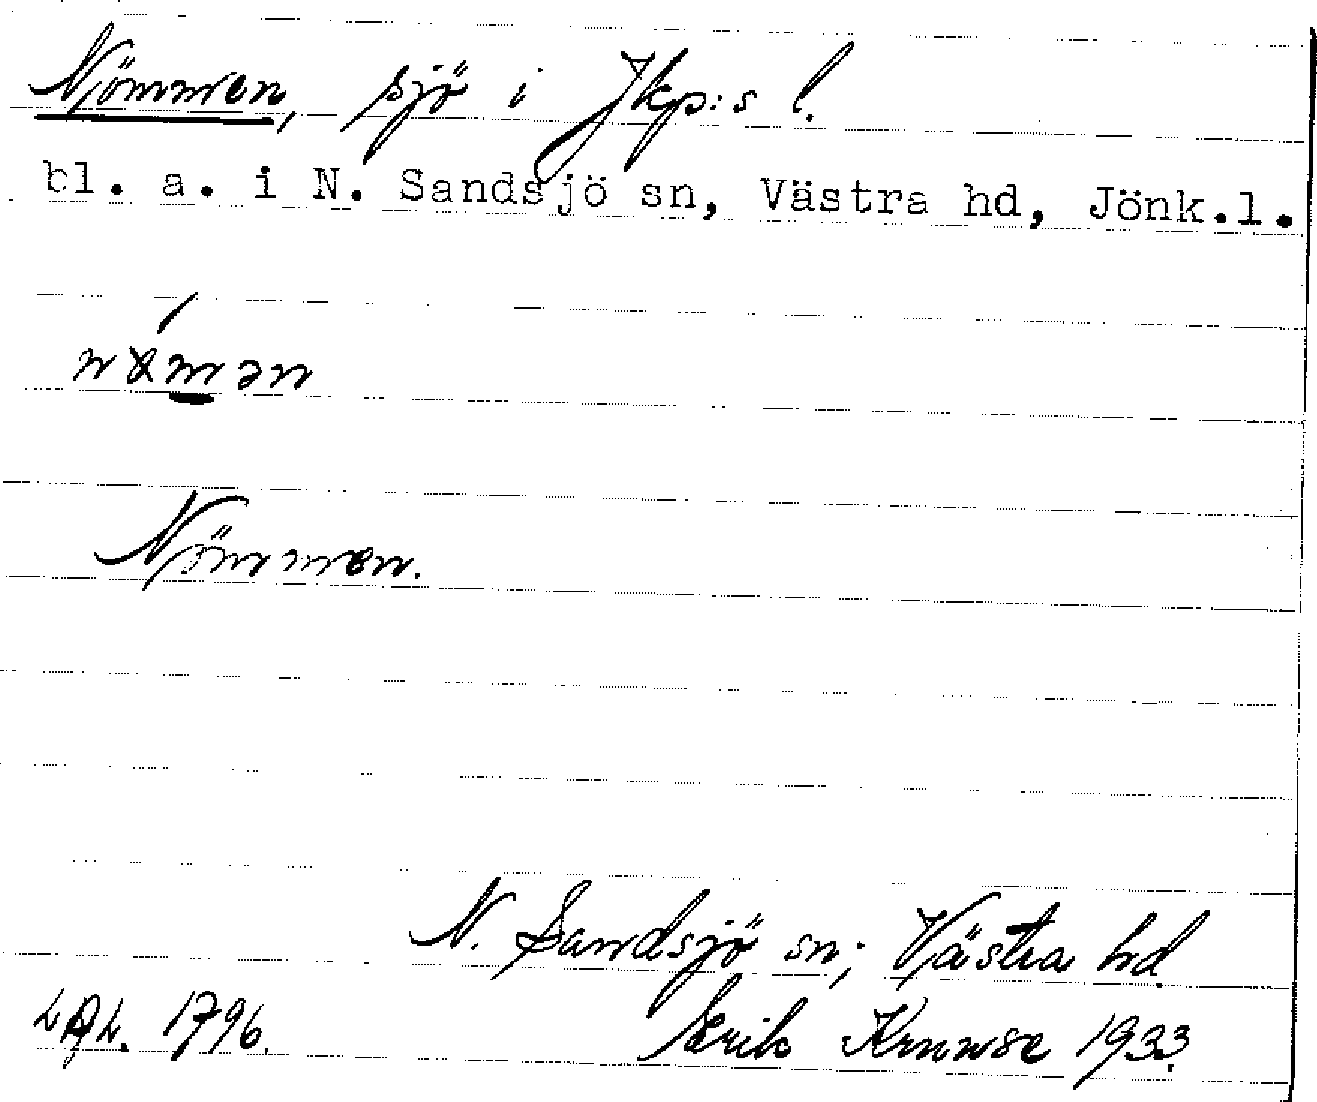 Nömmen, sjö i Jkp:s l.
bl. a. i N. Sandsjö sn, Västra hd, Jönk.l.
Nömmen.
N. Sandsjö sn; Västra hd
1796. Erik 1933